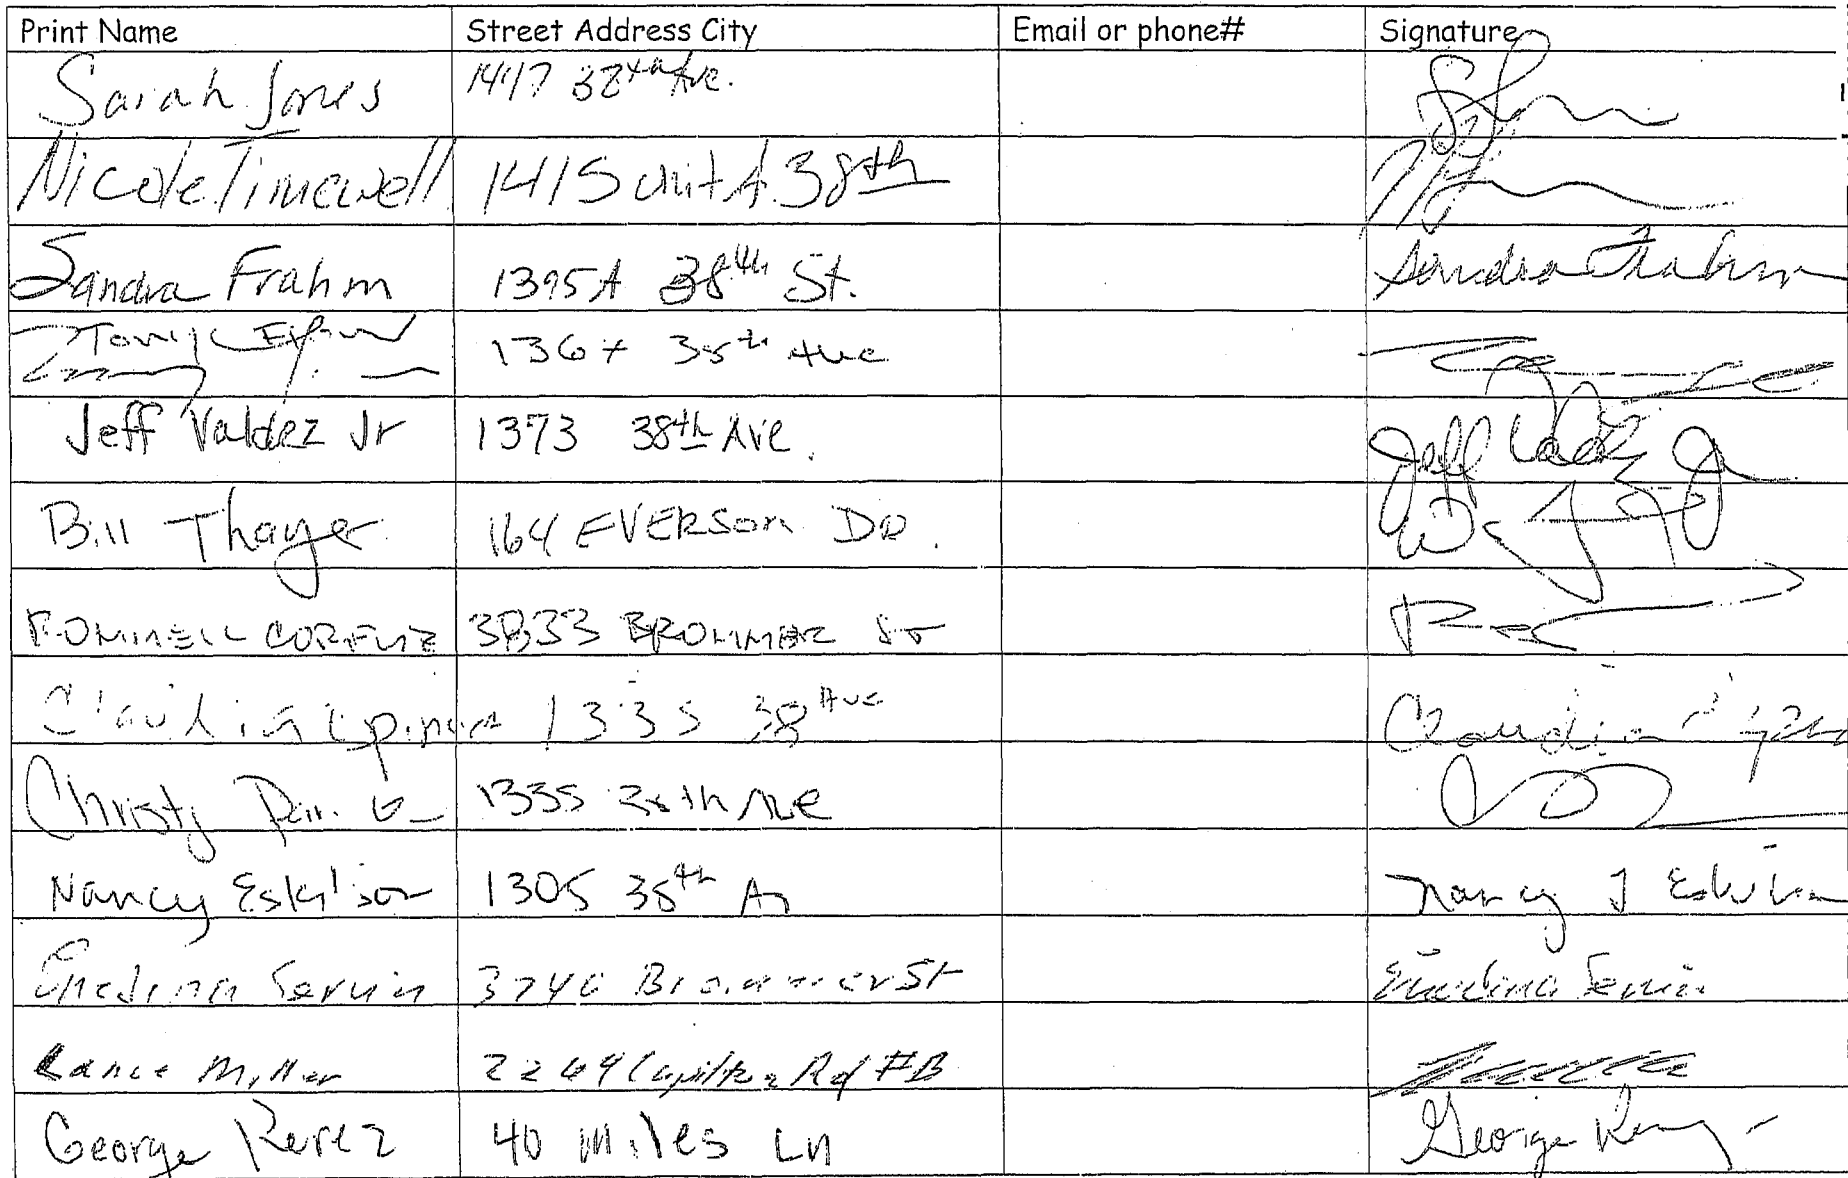 Print Name Street Address City Email or phone# Signature
Sarah Jones 1417 38th Ave.
Nicole Timewell 1415 Unit A 38th
Sandra Frahm 1395A 38th St. Sandra Frahm
38th Ave
Jeff Valdez Jr 1373 38th Ave. Jeff Valdez Jr
Bill Thayer 164 EVERSON DR.
3833 BROMMER ST
Claudia 1335 38 Ave Claudia
Christy 1335 38th Ave
Nancy Eskilson 1305 38th Av Nancy J Eskilson
Enedina Servin 3740 Brommer St Enedina Servin
Lance Miller 2269 Capitola Rd #B
George Perez 40 Miles Ln George Perez